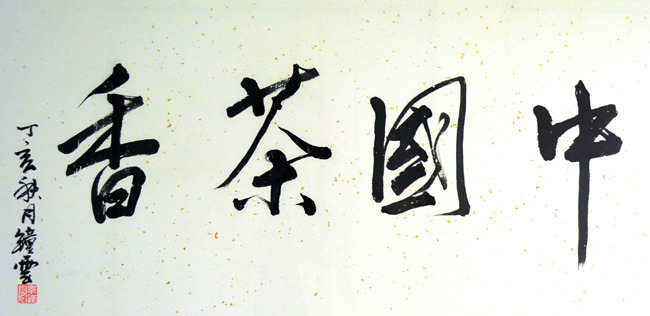 中國茶香
丁亥秋月鐘雲